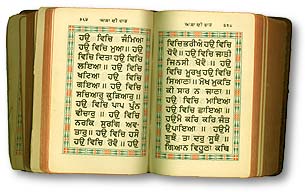 ਆਸਾ ਦੀ ਵਾਰ
ਹਉ ਵਿਚਿ ਜੰਮਿਆ
ਹਉ ਵਿਚਿ ਮੁਆ ॥ ਹਉ
ਵਿਚਿ ਦਿਤਾ ਹਉ ਵਿਚਿ
ਲਇਆ ॥ ਹਉ ਵਿਚਿ
ਗਇਆ ॥ ਹਉ ਵਿਚਿ
ਸਚਿਆਰੁ ਕੂੜਿਆਰੁ ॥
ਹਉ ਵਿਚਿ ਪਾਪ ਪੁੰਨ
ਵੀਚਾਰੁ ॥ ਹਉ ਵਿਚਿ
ਨਰਕਿ ਸੁਰਗਿ ਅਵ
ਤਾਰੁ ॥ ਹਉ ਵਿਚਿ ਹਸੈ
ਹਉ ਵਿਚਿ ਰੋਵੈ ॥ ਹਉ
ਆਸਾ ਦੀ ਵਾਰ
ਵਿਚਿਭਰੀਐ ਹਉ ਵਿਚਿ
ਧੋਵੈ ॥ ਹਉ ਵਿਚਿ ਜਾਤੀ
ਜਿਨਸੀ ਖੋਵੈ ॥ ਹਉ
ਵਿਚਿ ਮੂਰਖੁ ਹਉ ਵਿਚਿ
ਸਿਆਣਾ ॥ ਮੋਖ ਮੁਕਤਿ
ਕੀ ਸਾਰ ਨ ਜਾਣਾ ॥
ਹਉ ਵਿਚਿ ਮਾਇਆ
ਹਉ ਵਿਚਿ ਛਾਇਆ ॥
ਹਉਮੈ ਕਰਿ ਕਰਿ ਜੰਤ
ਉਪਾਇਆ ॥ ਹਉਮੈ
ਬੂਝੈ ਤਾ ਦਰੁ ਸੂਝੈ ॥
ਗਿਆਨ ਵਿਹੂਣਾ ਕਥਿ